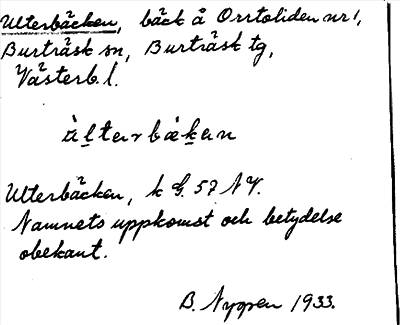 Ulterbäcken, bäck å Orrtoliden nr 1,
Burträsk sn, Burträsk tg,
Västerb. l.
ùlterbæken
Ulterbäcken, k G. 57 NV.
Namnets uppkomst och betydelse
obekant.
B. Nyppen 1933.